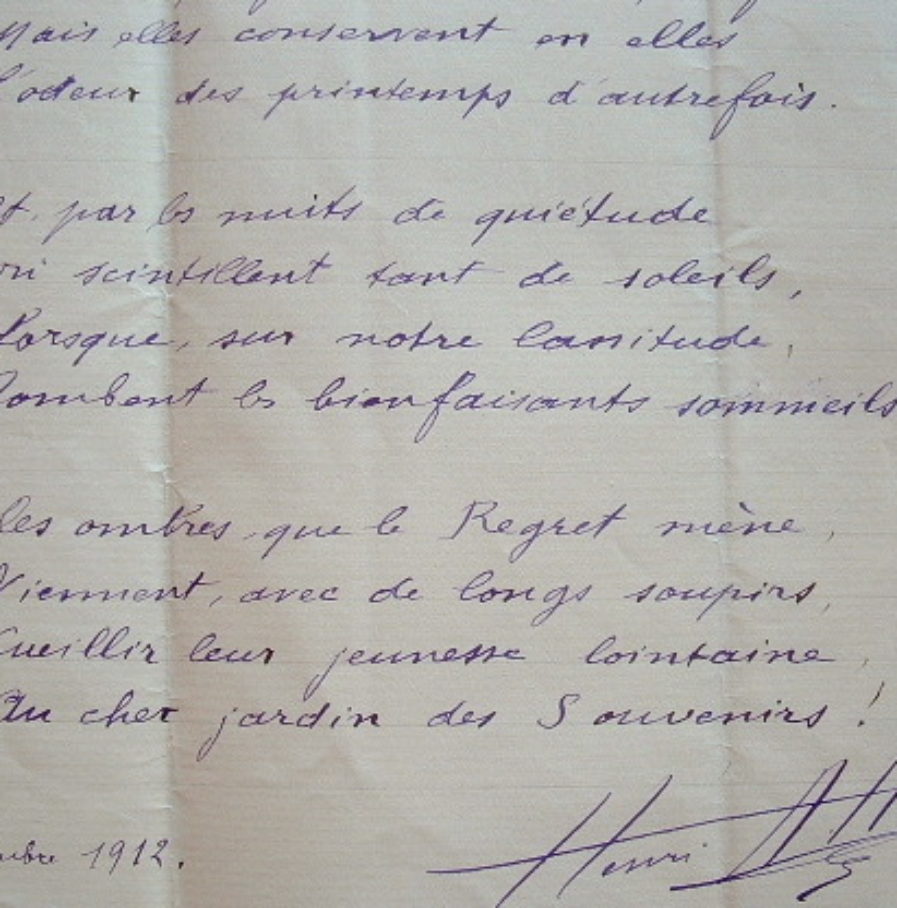 Mais elles conservent en elles
L'odeur des printemps d'autrefois.
Et, par les nuits de quiétude
Où scintillent tant de soleils,
Lorsque, sur notre lassitude,
Tombent les bienfaisants sommeils
Les ombres, que le Regret mène,
Viennent, avec de longs soupirs,
Cueillir leur jeunesse lointaine,
Au cher jardin des Souvenirs !
mbre 1912.
Henri